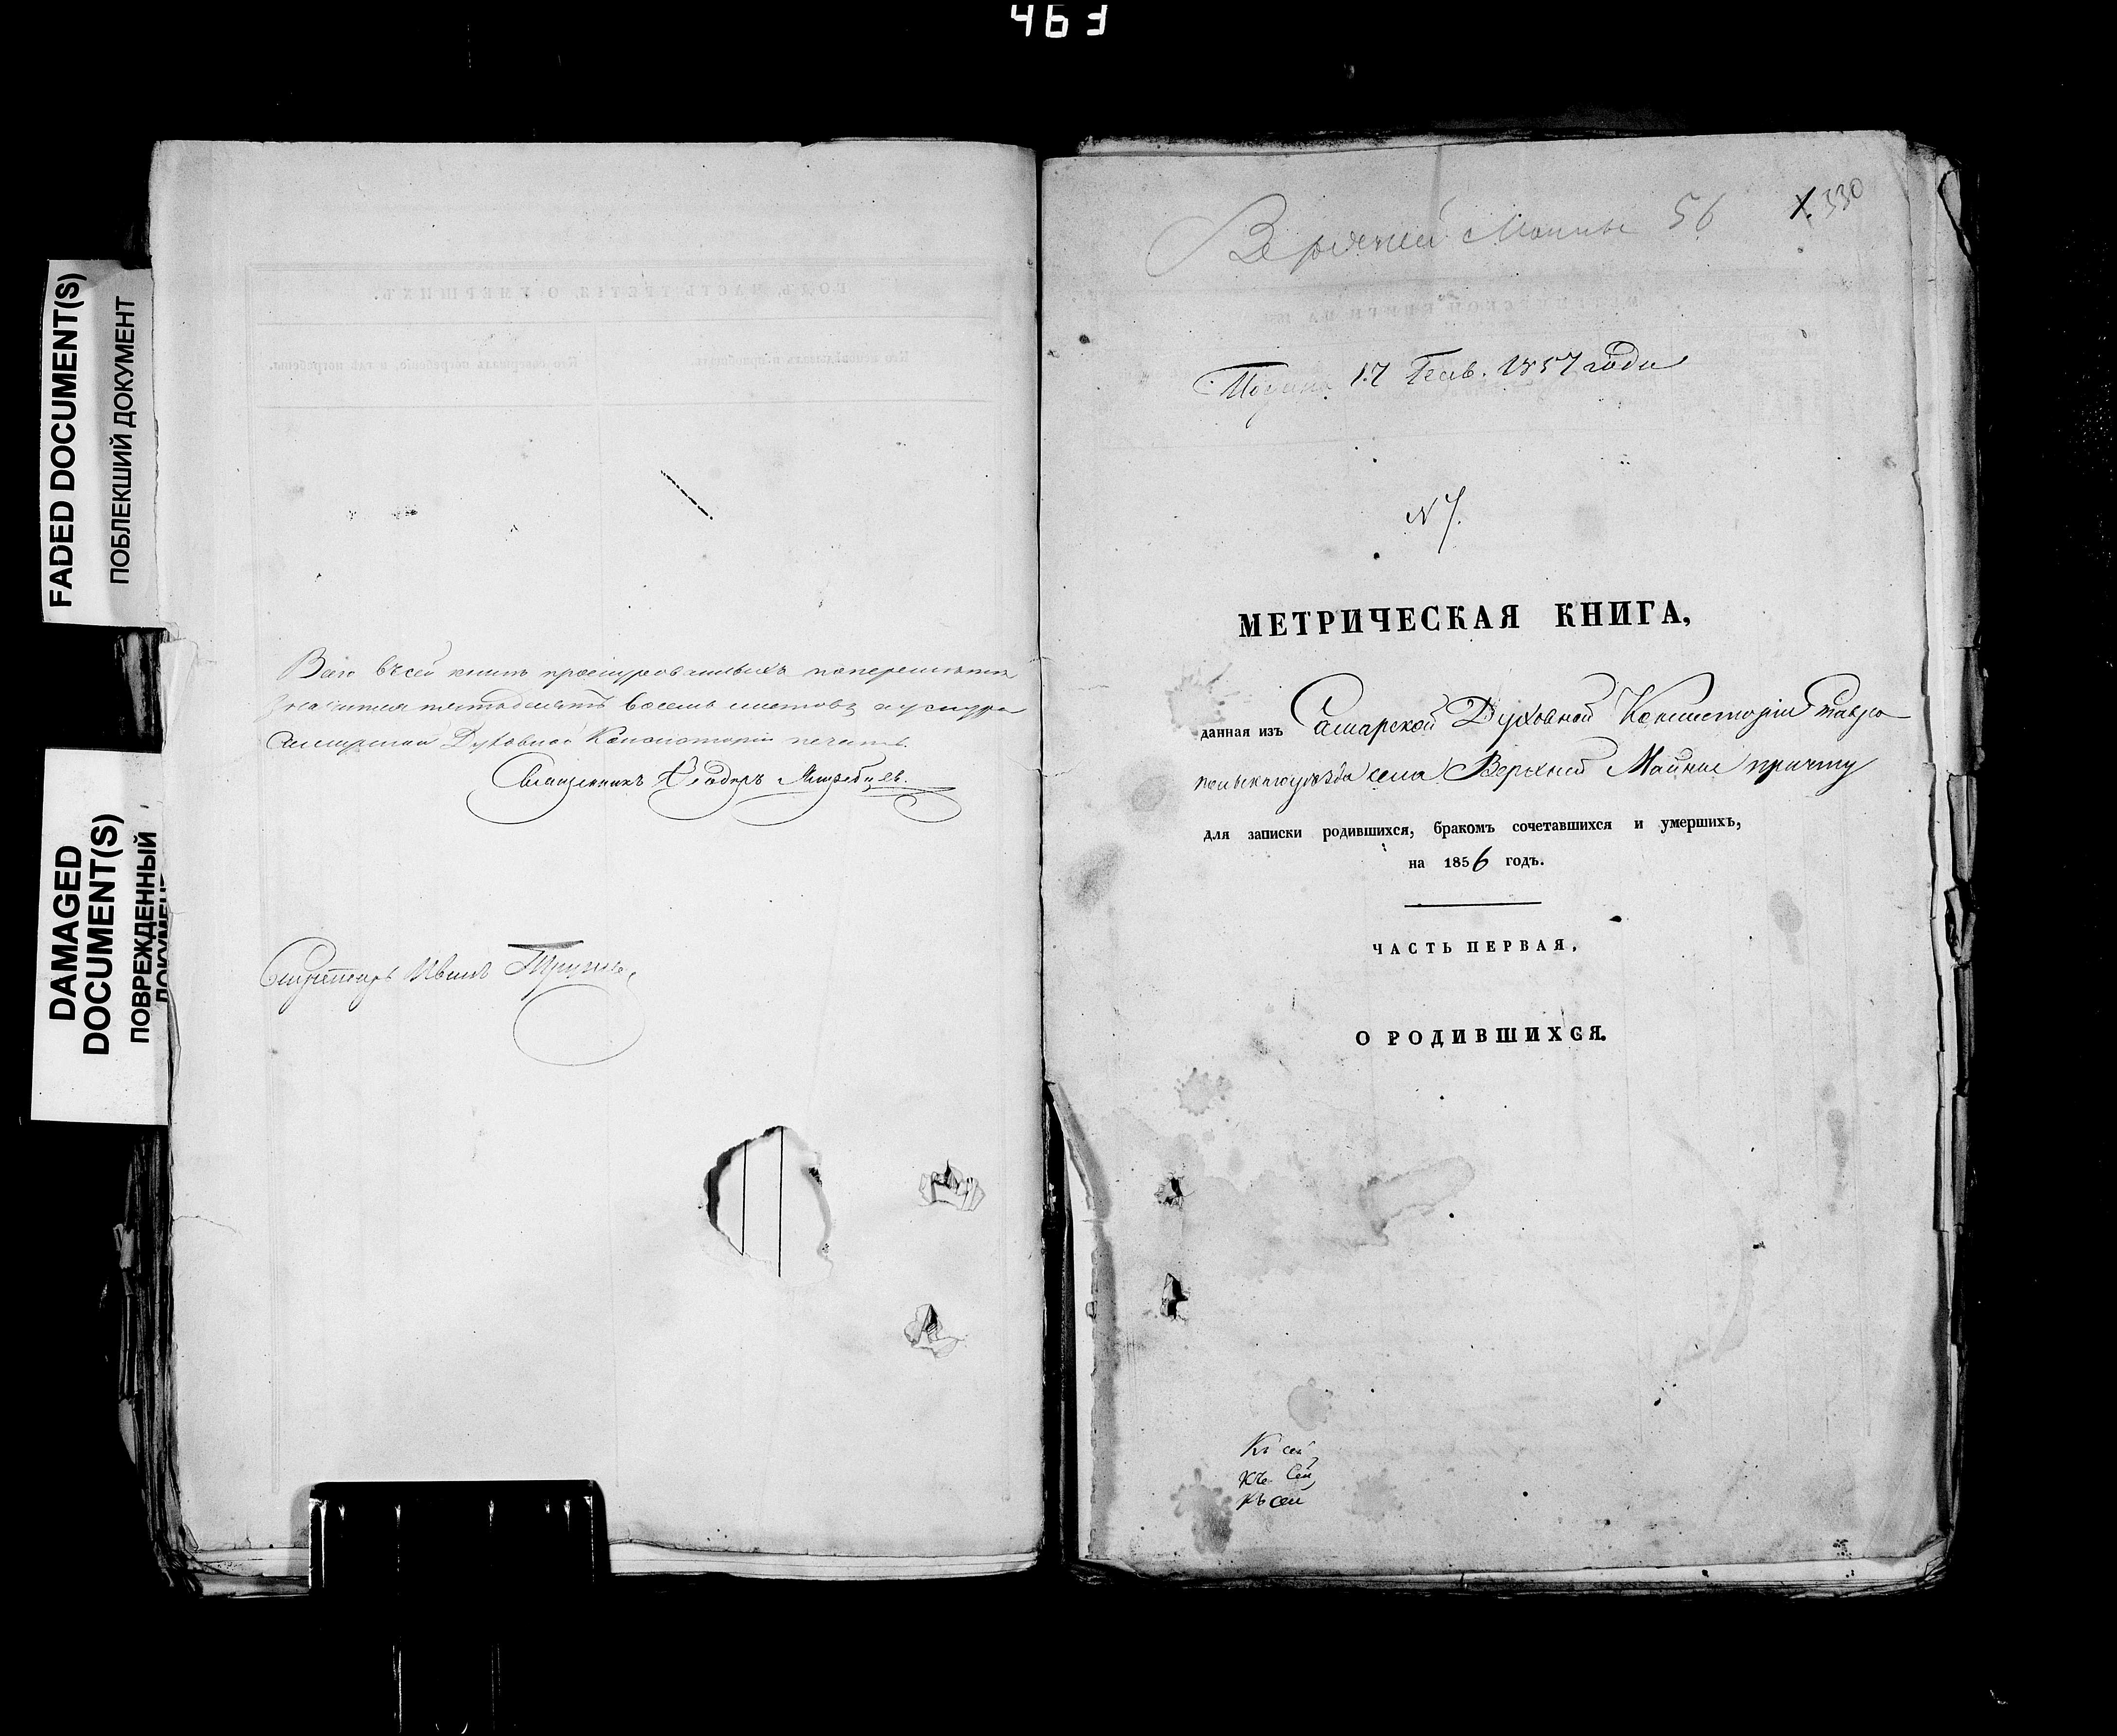 463
FADED DOCUMENT(S)
ПОБЛЕКШИЙ ДОКУМЕНТ
DAMAGED
DOCUMENT(S)
ПОВРЕЖДЕННЫЙ
ДОКУМЕНТ
ГОДЪ, ЧАСТЬ ТРЕТІЯ, О УМЕРШИХЪ.
Кто совершалъ погребеніе, и гдѣ погребены.
Всего въ сей книгѣ прошнурованныхъ
пятьдесятъ восемь листовъ
Самарской Духовной Консисторіи печать.
Священникъ Ѳеодоръ
Секретарь Иванъ
Верхней Майны 56
330
17 Генв. 1857 года
N 7.
МЕТРИЧЕСКАЯ КНИГА,
данная изъ Самарской Духовной Консисторіи Ставро
польскаго уѣзда села Верхней Майны причту
для записки родившихся, бракомъ сочетавшихся и умершихъ,
на 1856 годъ.
ЧАСТЬ ПЕРВАЯ,
О РОДИВШИХСЯ.
Къ сей
Къ Сей
Къ сей